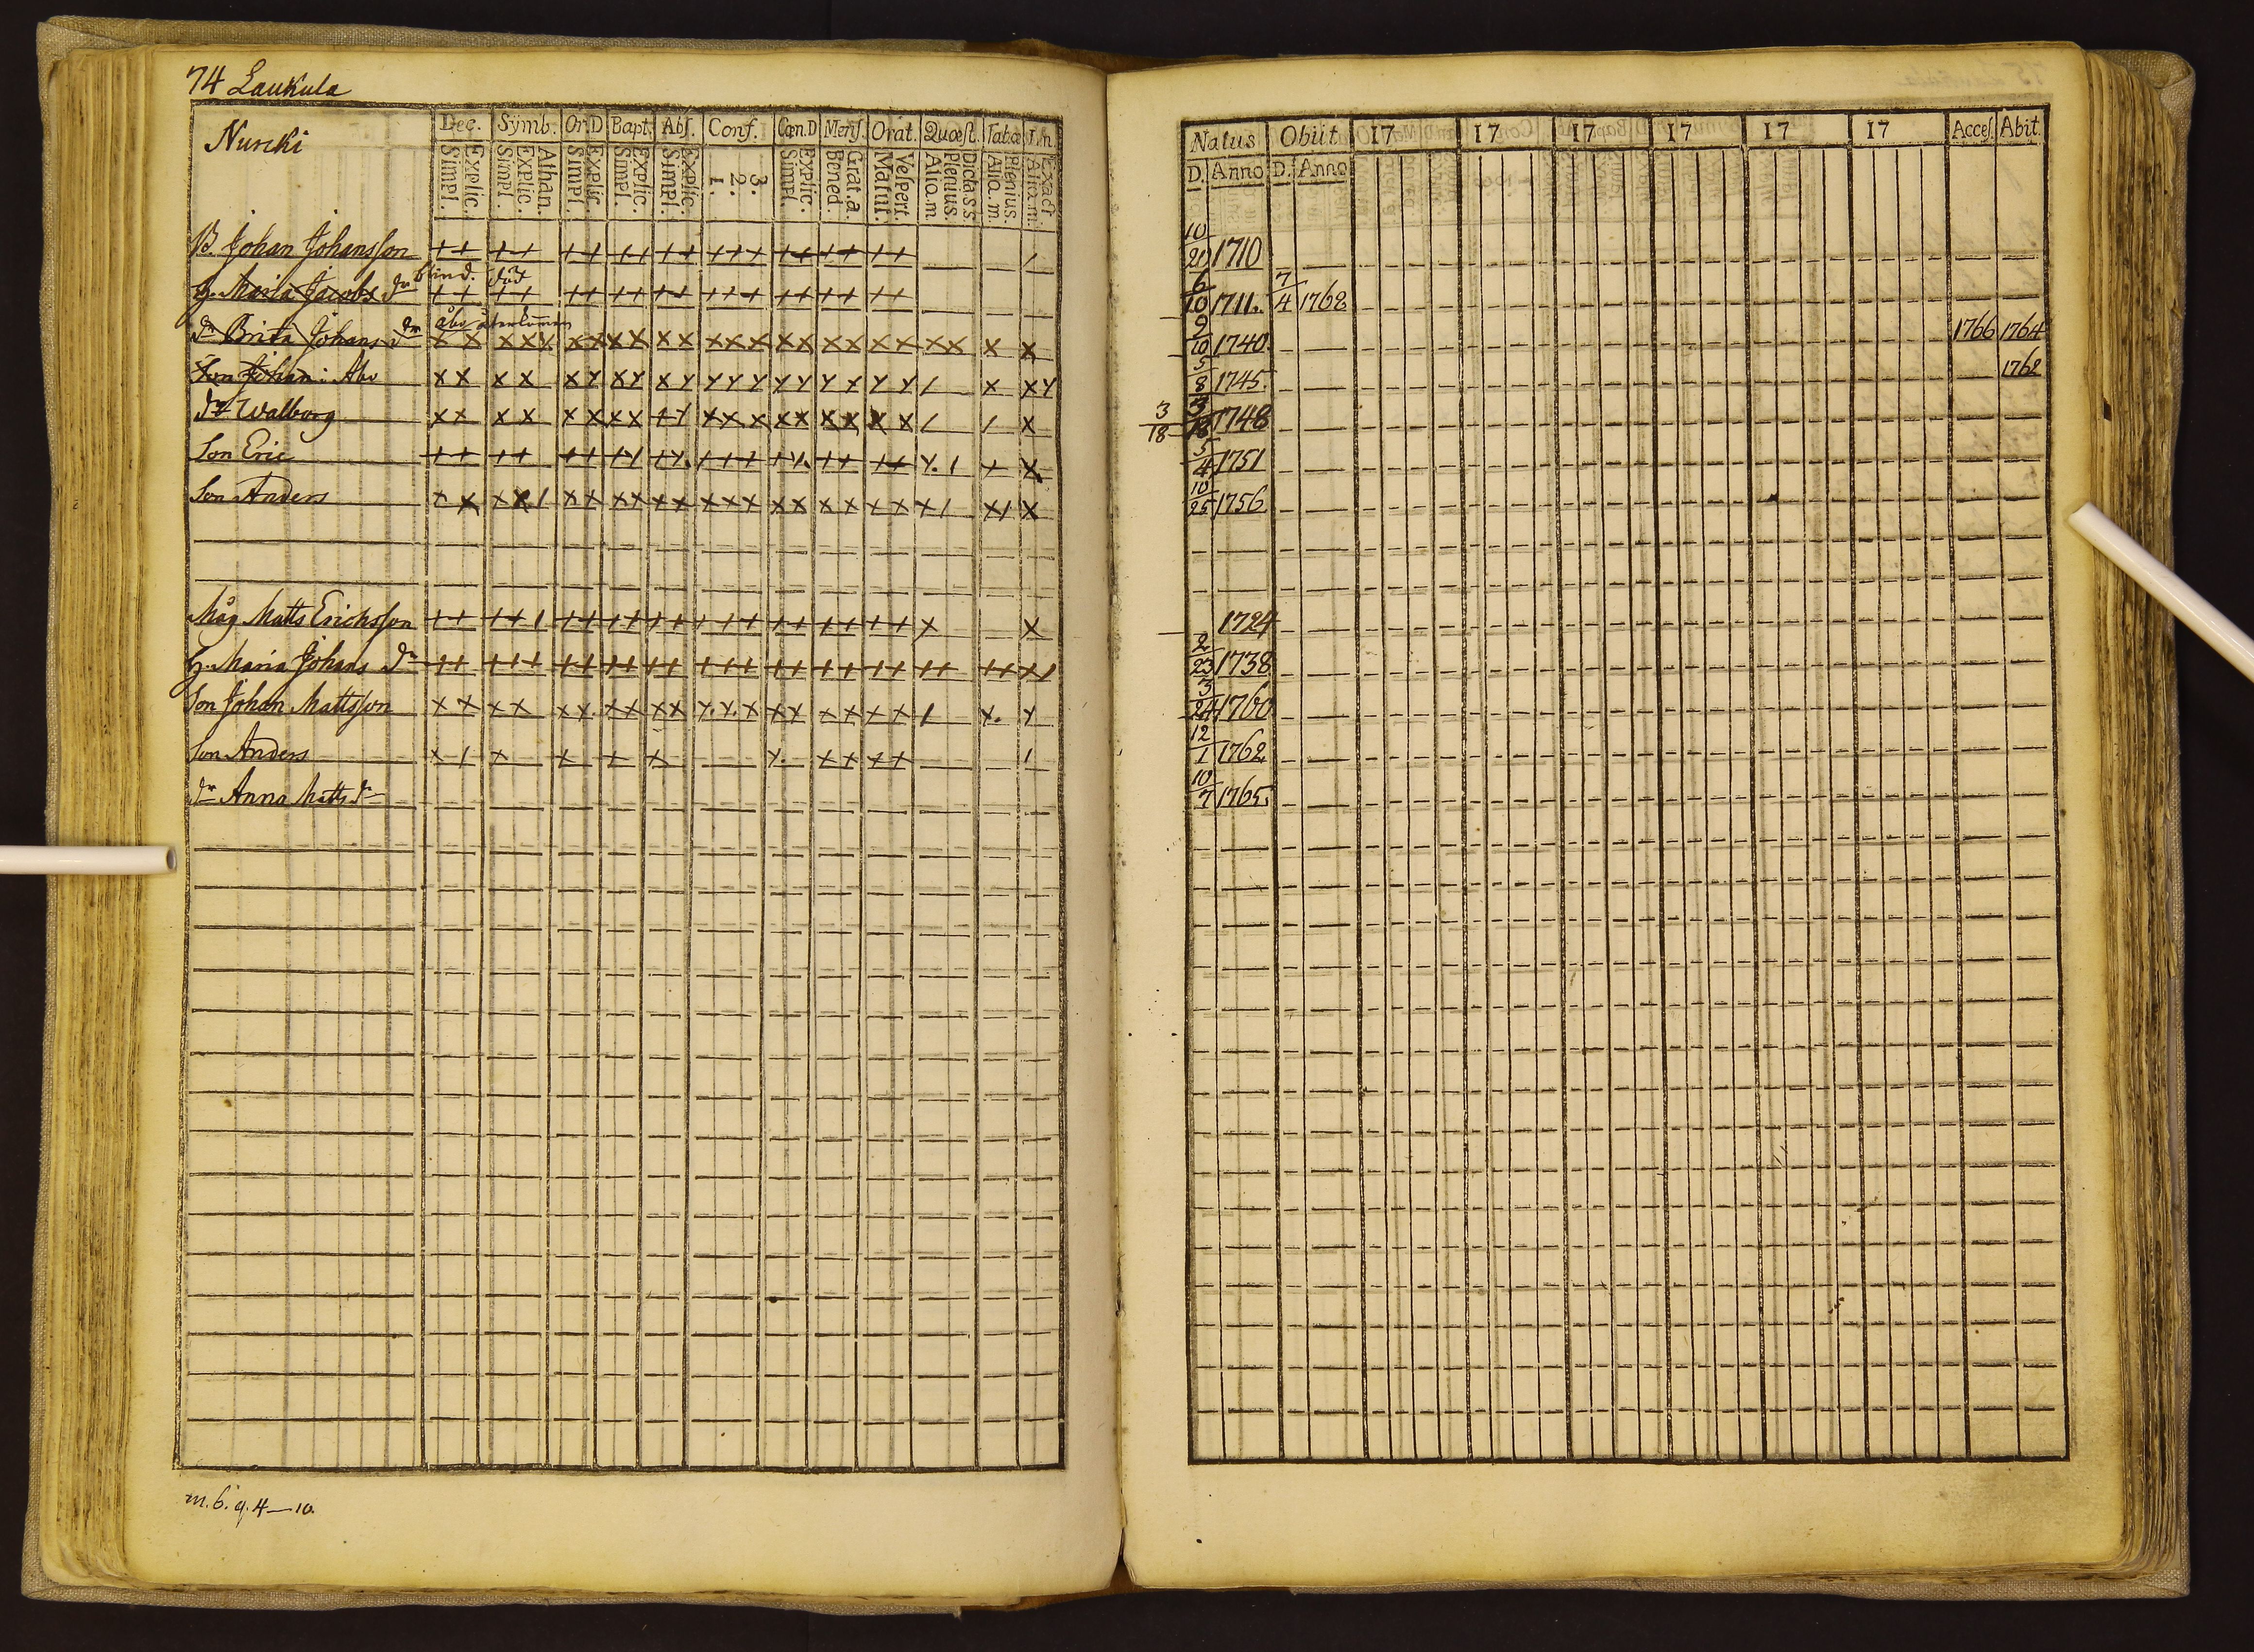 74 Laukula
Nurcki
Dec. Symb. Or.D Bapt. Abſ. Conf. Cœn.D Menſ. Orat. Quæſt. Tabæ
Explic. Simpl. Athan. Explic. Simpl. Explic. Simpl. Explic. Simpl. Explic. Simpl. 3. 2. 1. Explic. Simpl. Grat.a Bened. Veſpert. Matut. D:class. Plenius. Aliq.m. Plenius. Aliq.m. Exact Aliq.m.
Natus Obiit 17 17 17 17 17 17 Acceſ. Abit.
D. Anno D. Anno
B. Johan Johansſon ++ ++ ++ ++ ++ +++ ++ ++ ++ / 10/20 1710
blind. död
H. Maria Jacobs dr ++ ++ ++ ++ ++ +++ ++ ++ ++ 6/10 1711. 7/4 1768
åbo återkommen
dr Brita Johans dr x x x x y x x x x x x x x x x x x x x x x x x x 9/10 1740 1766 1764
Son Johan: Abo x x x x x y x y x y y y y y y y x y y / x x y 5/8 1745. 1762
dr Walborg x x x x x x x x + / x x x x x x x x x / / x 3/18 3/18 1748
Son Eric 5/4 1751
Son Anders 10/25 1756
Måg Matts Erichsſon 1724
H. Maria Johans dr 2/23 1738
Son Johan Mattsſon 3/24 1760
Son Anders x / x x x x y. x x x x / 12/1 1762
dr Anna Matts dr 10/7 1765.
m. 6. q. 4 — 10.